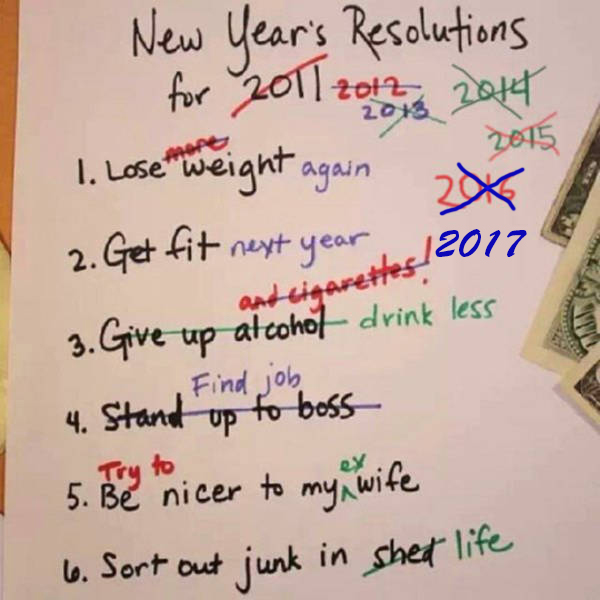 New Year's Resolutions
for 2011 2012 2014
2013
2015
more
1. Lose weight again
2016
2. Get fit next year 2017
and cigarettes!
3. Give up alcohol drink less
Find job
4. Stand up to boss
Try to ex
5. Be nicer to my wife
6. Sort out junk in shed life